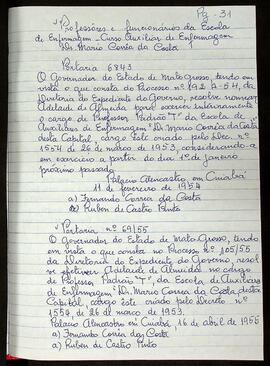 Pg - 31
Professores e funcionários da Escola
de Enfermagem - Curso Auxiliar de Enfermagem
"Dr. Mario Corrêa da Costa"
Portaria 6843
O Governador do Estado de Mato Grosso, tendo em
vista o que consta do Processo nº 192 A-54, da
Diretoria do Expediente do Governo, resolve nomear
Adelaide de Almeida para exercer interinamente
o cargo de Professor Padrão "T", da Escola de
Auxiliares de Enfermagem "Dr. Mario Corrêa da Costa"
desta Capital, cargo este criado pelo Dec. nº
1554 de 26 de março de 1953, considerando-a
em exercicio a partir do dia 1º de janeiro
próximo passado
Palacio Alencastro em Cuiabá
11 de fevereiro de 1954
a) Fernando Corrêa da Costa
a) Ruben de Castro Pinto
Portaria nº 69/55
O Governador do Estado de Mato Grosso, tendo
em vista o que consta no Processo nº 105/55
da Diretoria do Expediente do Governo, resol-
ve efetivar Adelaide de Almeida no cargo
de Professor Padrão "T", da Escola de Auxiliares
de Enfermagem "Dr. Mario Corrêa da Costa desta
Capital, cargo este criado pelo Decreto nº
1554, de 26 de março de 1953.
Palacio Alencastro em Cuiabá 16 de abril de 1955
a) Fernando Corrêa da Costa
a) Ruben de Castro Pinto